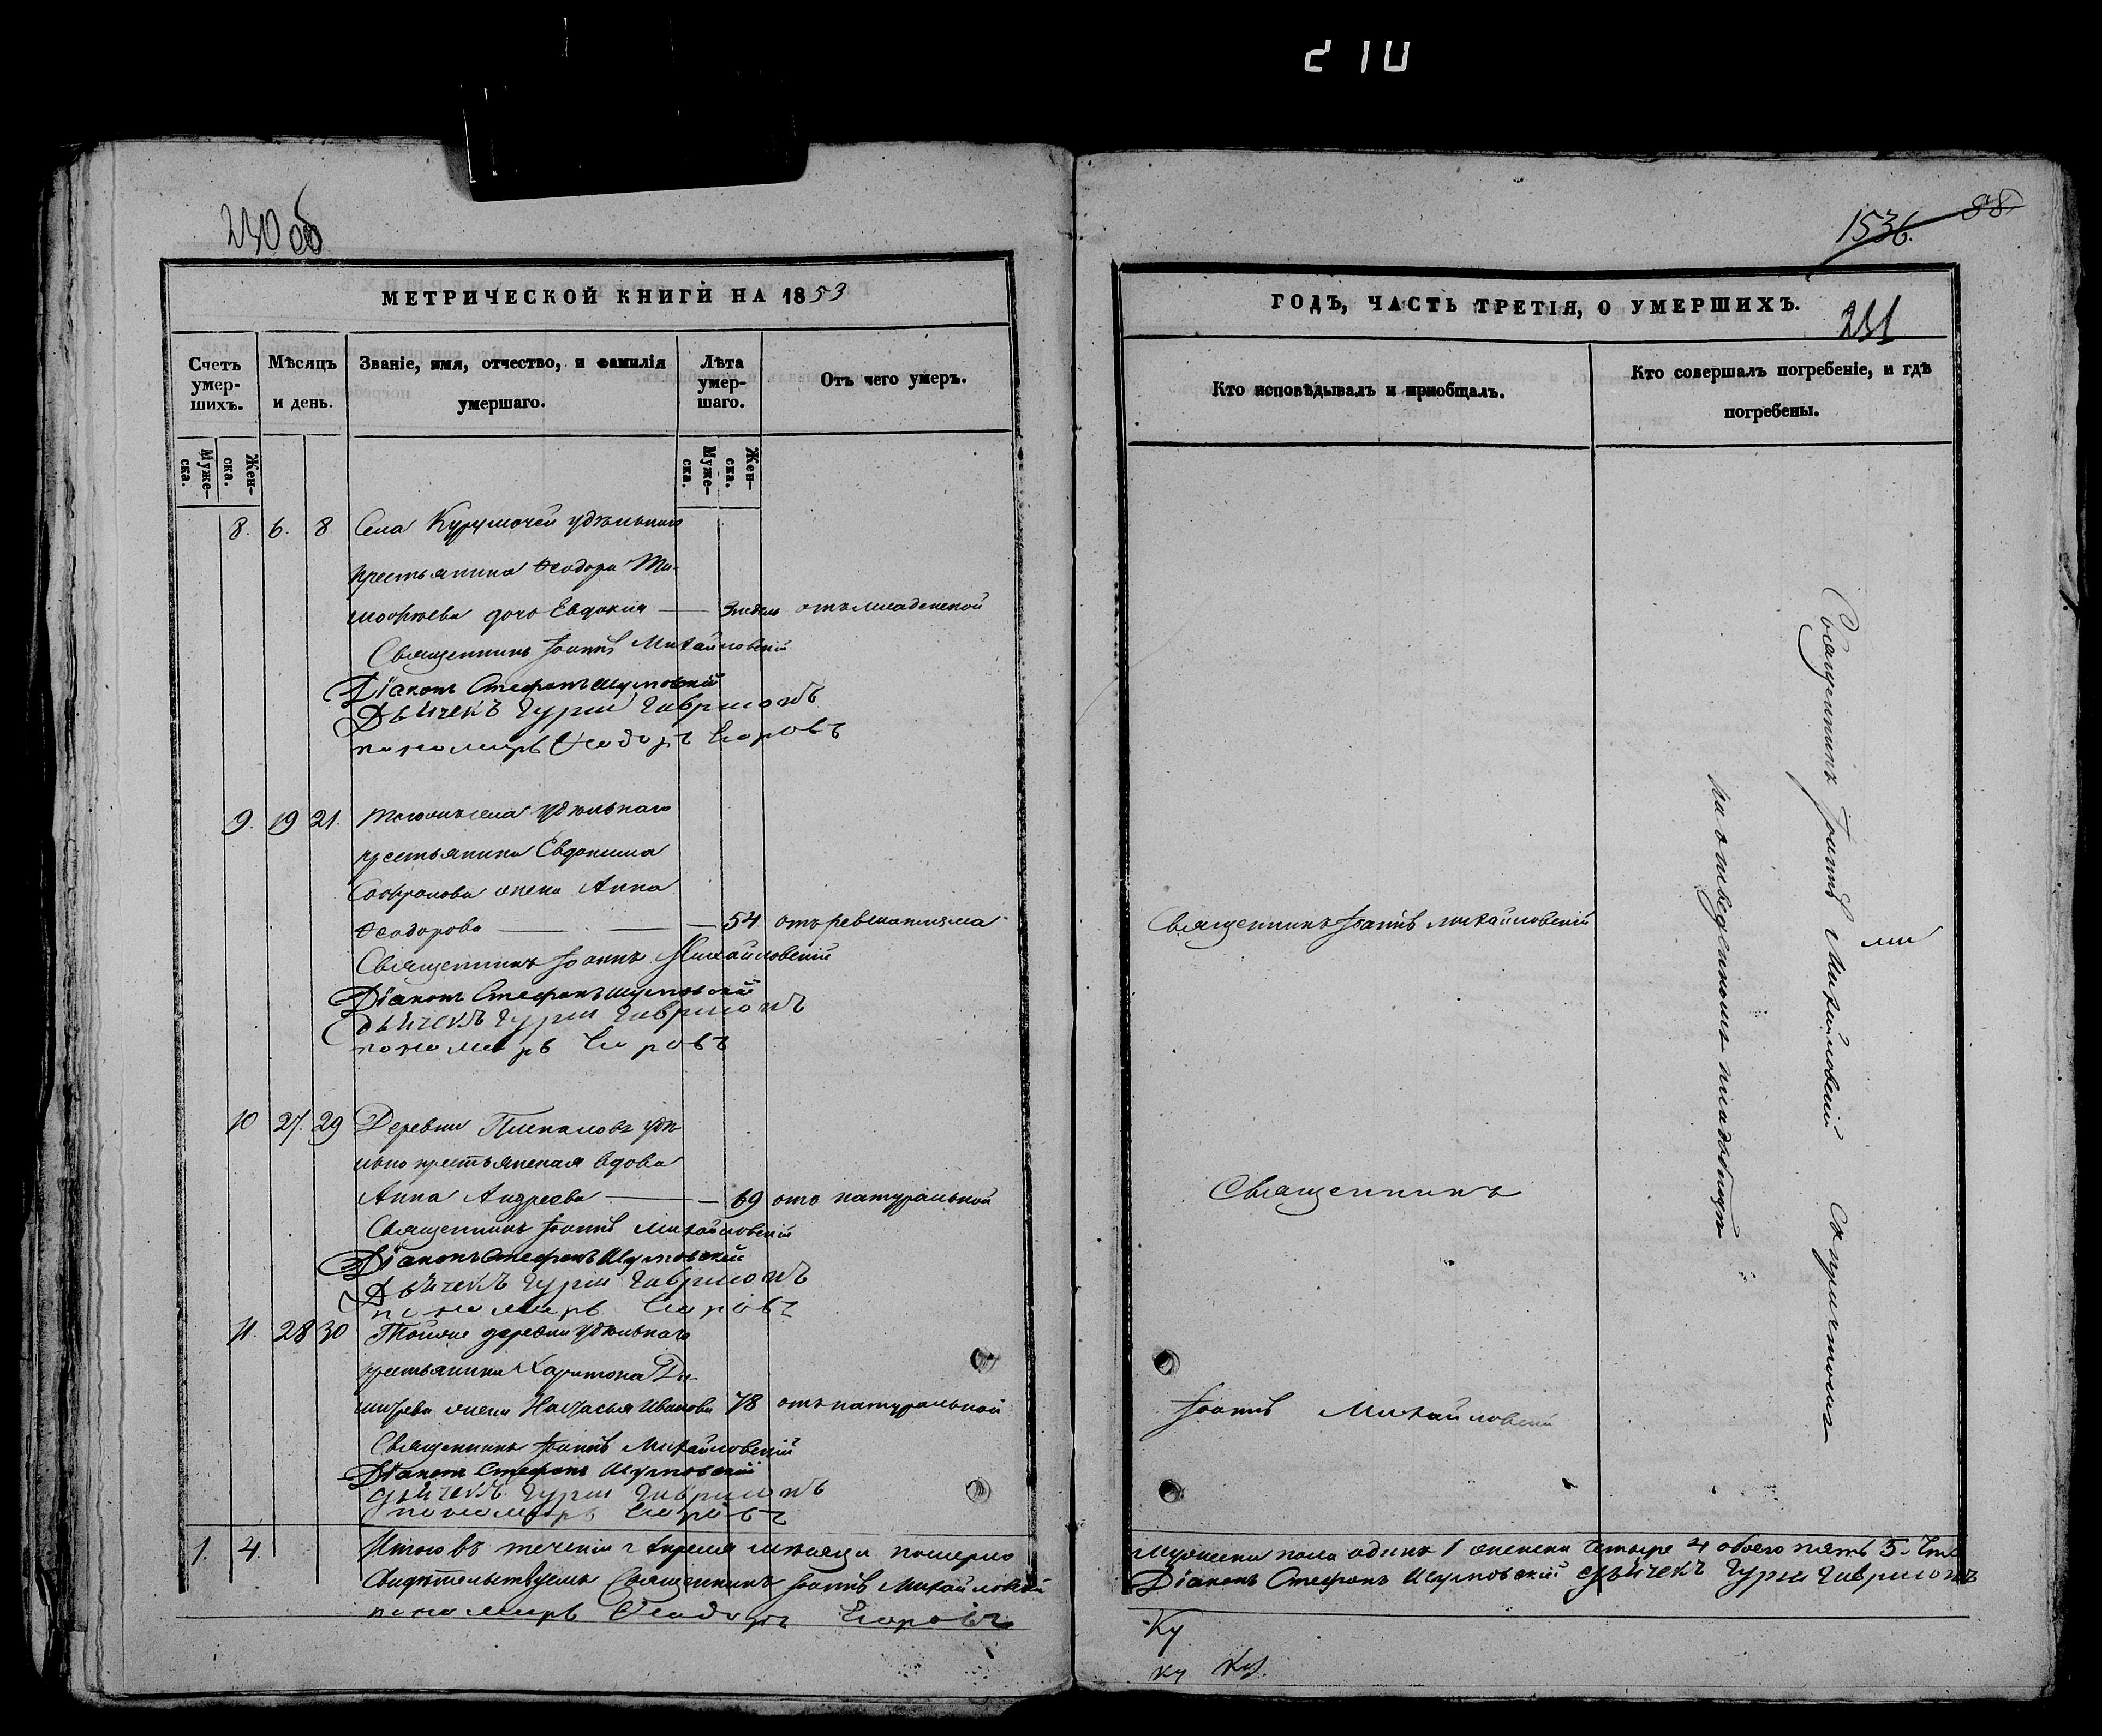 210
230 об
МЕТРИЧЕСКОЙ КНИГИ НА 1853
Счетъ умер-шихъ.
Мѣсяцъ и день.
Званіе, имя, отчество, и фамилія умершаго.
Лѣта умер-шаго.
Отъ чего умеръ.
Муже-ска.
Жен-ска.
Муже-ска.
Жен-ска.
8. 6. 8 Села Курумочей удѣльнаго
крестьянина Ѳеодора Ти-
моѳѣева дочь Евдокия — 3 недѣль отъ младенской
Священникъ Іоаннъ Михайловскій
Діаконъ Стефанъ
Дьячекъ Гурій Гавриловъ
пономарь Ѳеодоръ Егоровъ
9. 19 21. Тогоже села удѣльнаго
крестьянина Евдокима
Софронова жена Анна
Ѳеодорова — 54 отъ ревматизма
Священникъ Іоаннъ Михайловскій
Діаконъ Стефанъ
дьячекъ Гурій Гавриловъ
пономарь Егоровъ
10 27. 29 Деревни удѣ-
льно крестьянская вдова
Анна Андреева — 69 отъ натуральной
Священникъ Іоаннъ Михайловскій
Діаконъ Стефанъ
Дьячекъ Гурій Гавриловъ
пономарь Егоровъ
11. 28 30 Тойже деревни удѣльнаго
крестьянина Харитона Ди-
митрева жена Настасья Иванова 78 отъ натуральной
Священникъ Іоаннъ Михайловскій
Діаконъ Стефанъ
дьячекъ Гурій Гавриловъ
пономарь Егоровъ
1. 4. Итого въ теченіи Апреля мѣсяца померло
Свидѣтельствуемъ Священникъ Іоаннъ Михайловскій
пономарь Ѳеодоръ Егоровъ
1536. 88
ГОДЪ, ЧАСТЬ ТРЕТІЯ, О УМЕРШИХЪ.
231
Кто исповѣдывалъ и пріобщалъ.
Кто совершалъ погребеніе, и гдѣ погребены.
Священникъ Іоаннъ Михайловскій
Священникъ
Іоаннъ Михайловскій
Священникъ Іоаннъ Михайловскій съ причтомъ
на отведенномъ кладбищѣ
мужеска пола одинъ 1 женска четыре 4 обоего пять 5. Что
Діаконъ Стефанъ дьячекъ Гурій Гавриловъ
Ку
ку Ку